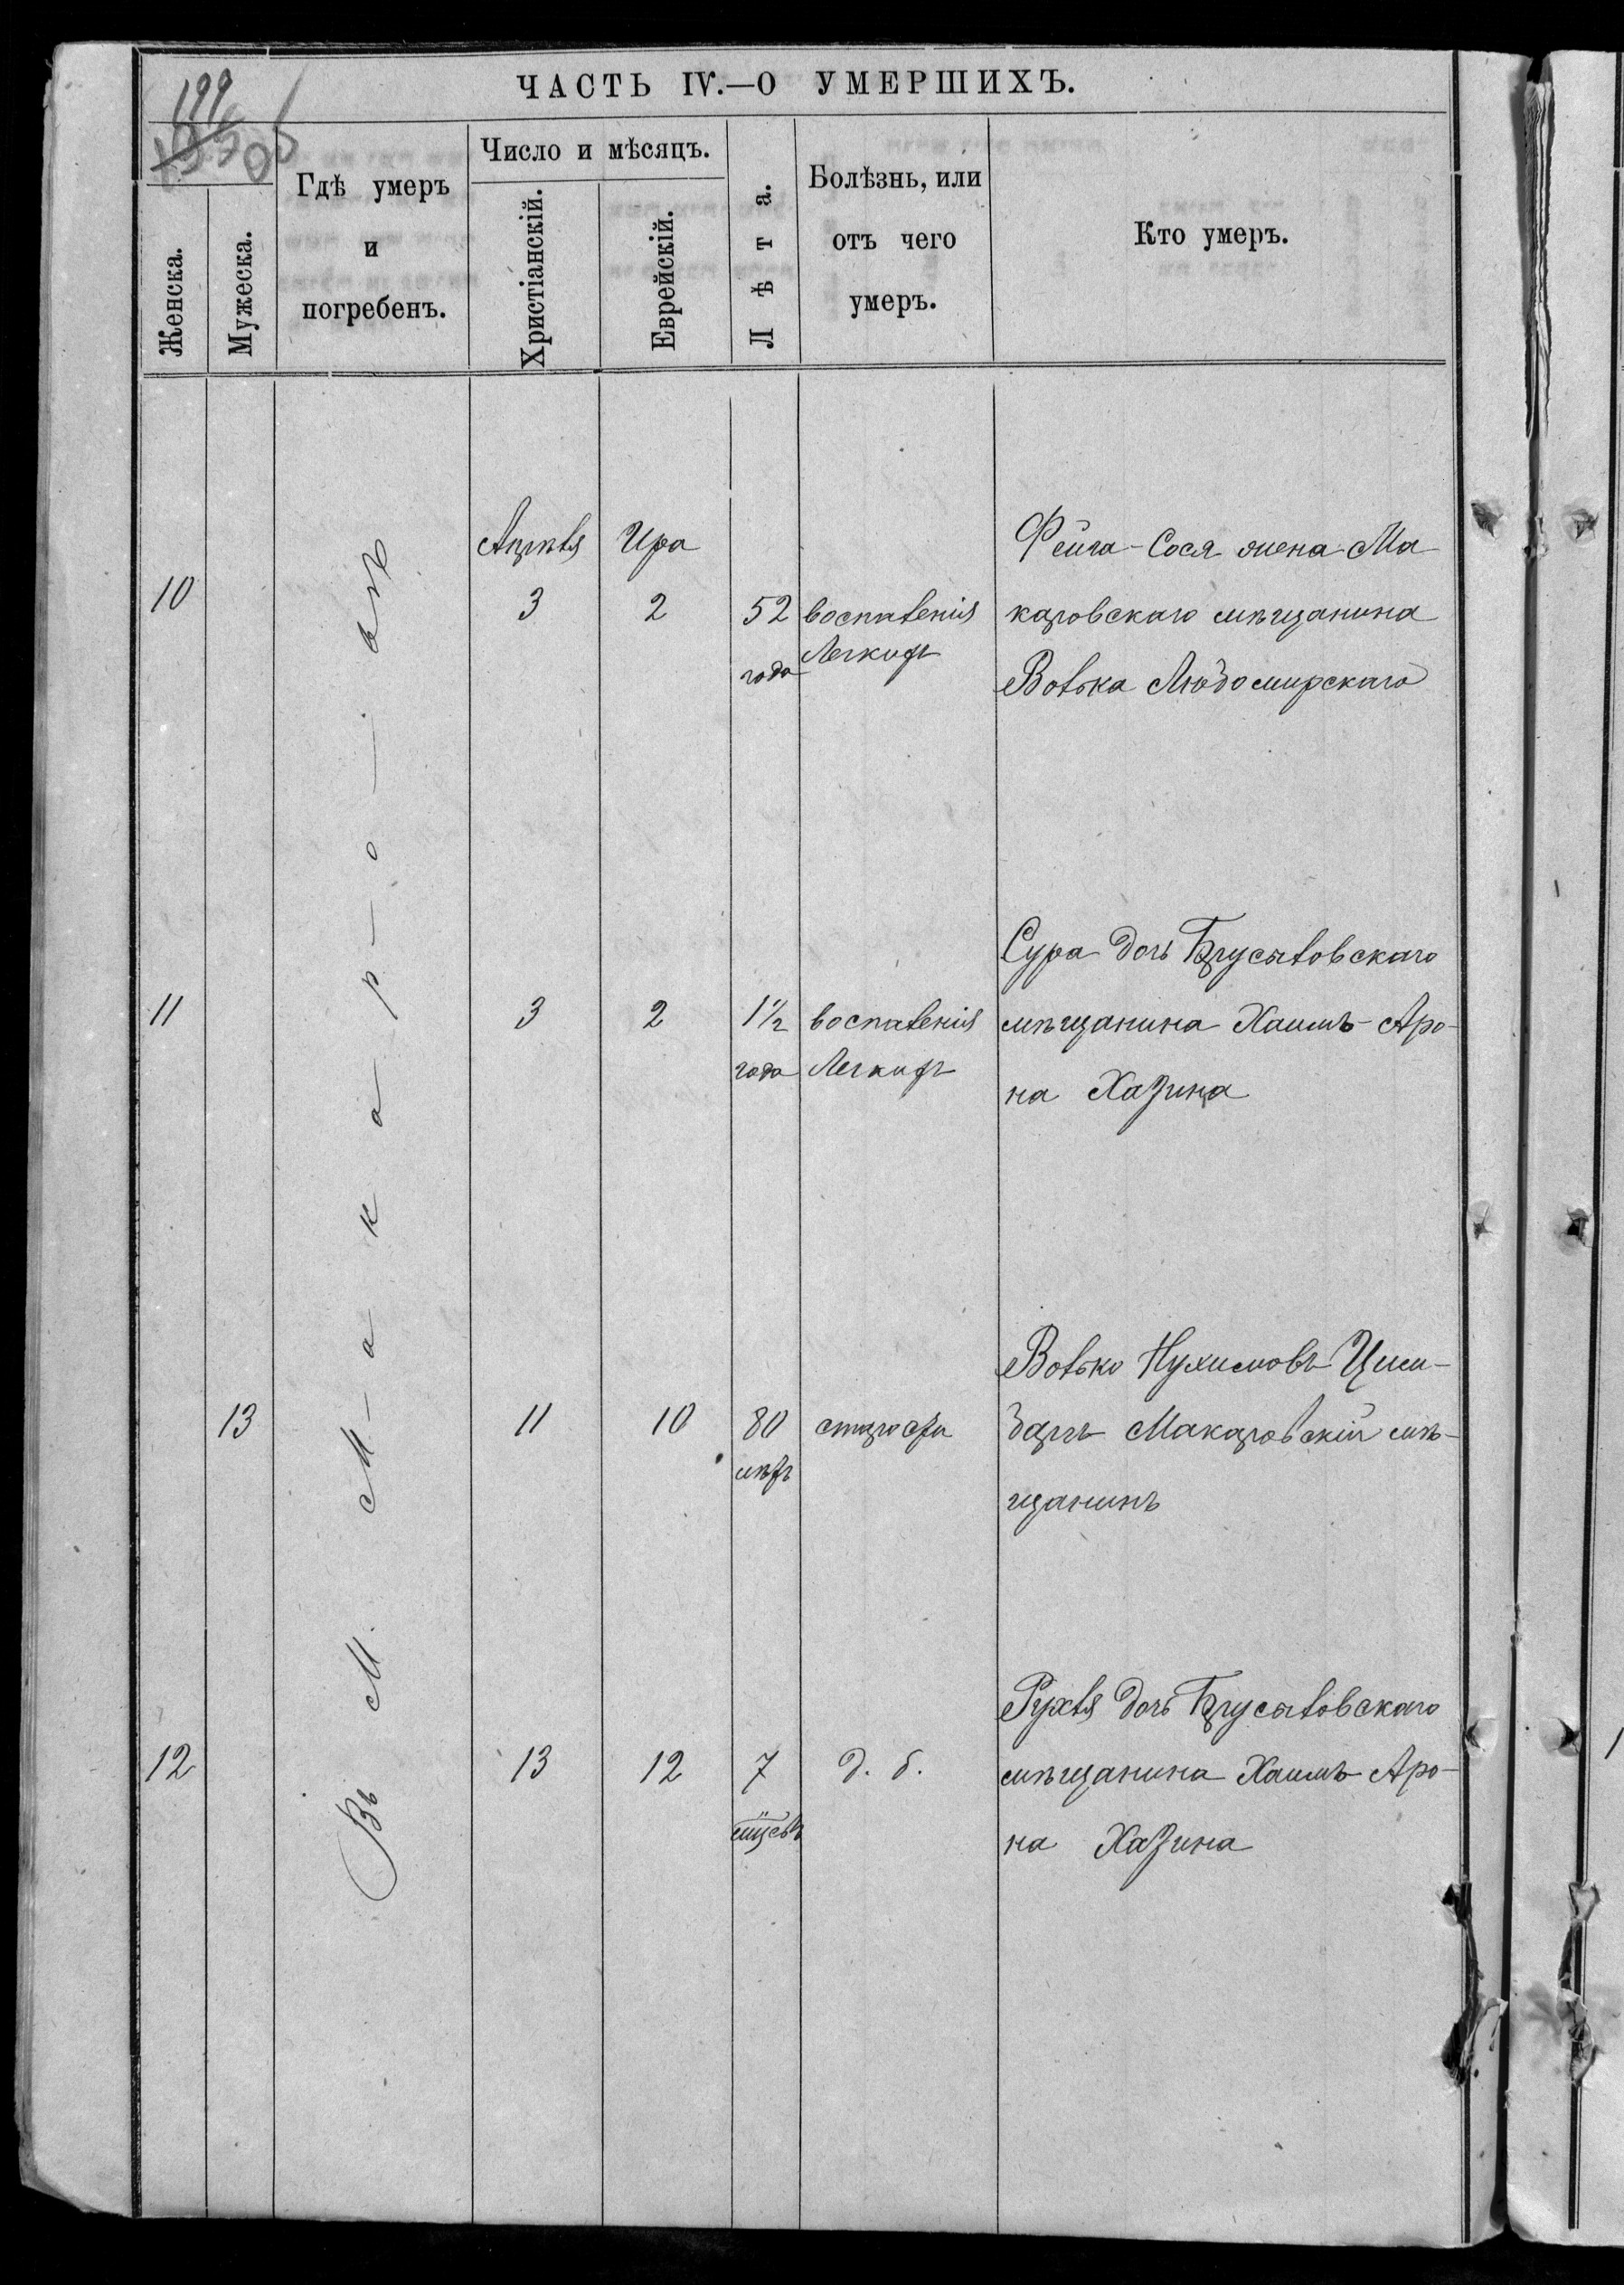 199
ЧАСТЬ IV.—О УМЕРШИХЪ.
Женска.
Мужеска.
Гдѣ умеръ
и
погребенъ.
Число и мѣсяцъ.
Христіанскій.
Еврейскій.
Лѣта.
Болѣзнь, или
отъ чего
умеръ.
Кто умеръ.
Въ М. М-а к а р-о-вѣ
Апрѣля Ира
10 3 2 52 года воспаленія
Легкихъ
Фейга-Сося жена Ма-
каровскаго мѣщанина
Волька Людомирскаго
11 3 2 1½ года воспаленія
Легкихъ
Сура дочь Брусиловскаго
мѣщанина Хаимъ-Аро-
на Хазина
13 11 10 80 лѣтъ старости
Волько Нухимовъ Цим-
балъ Макаровскій мѣ-
щанинъ
12 13 12 7 мцевъ д. б.
Рухля дочь Брусиловскаго
мѣщанина Хаимъ-Аро-
на Хазина